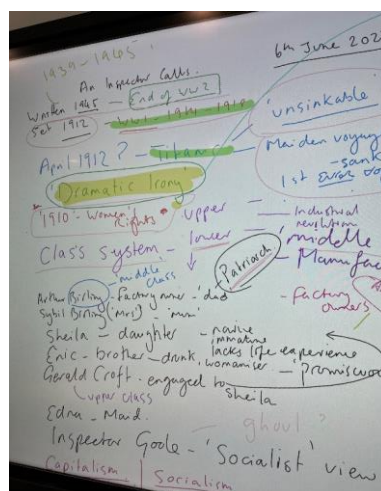 1939-1945
6th June 202
An Inspector Calls.
Written 1945 - End of WW2
Set 1912 WW1 - 1914-1918
'unsinkable'
April 1912? - Titanic
Maiden voyag
- sank
1st
'Dramatic Irony'
'1910' - Women's Rights
upper
Industrial revolution
Class System - lower
middle
Patriarch
Manufac
'middle class'
Arthur Birling - factory owner - 'dad'
factory owners
Sybil Birling (Mrs) - 'mum'
Sheila - daughter - naive
immature
lacks life experience
Eric - brother - drunk, womaniser - 'promiscuo
Gerald Croft - engaged to Sheila
upper class
Edna - Maid.
ghoul?
Inspector Goole - 'Socialist' view
Capitalism | Socialism